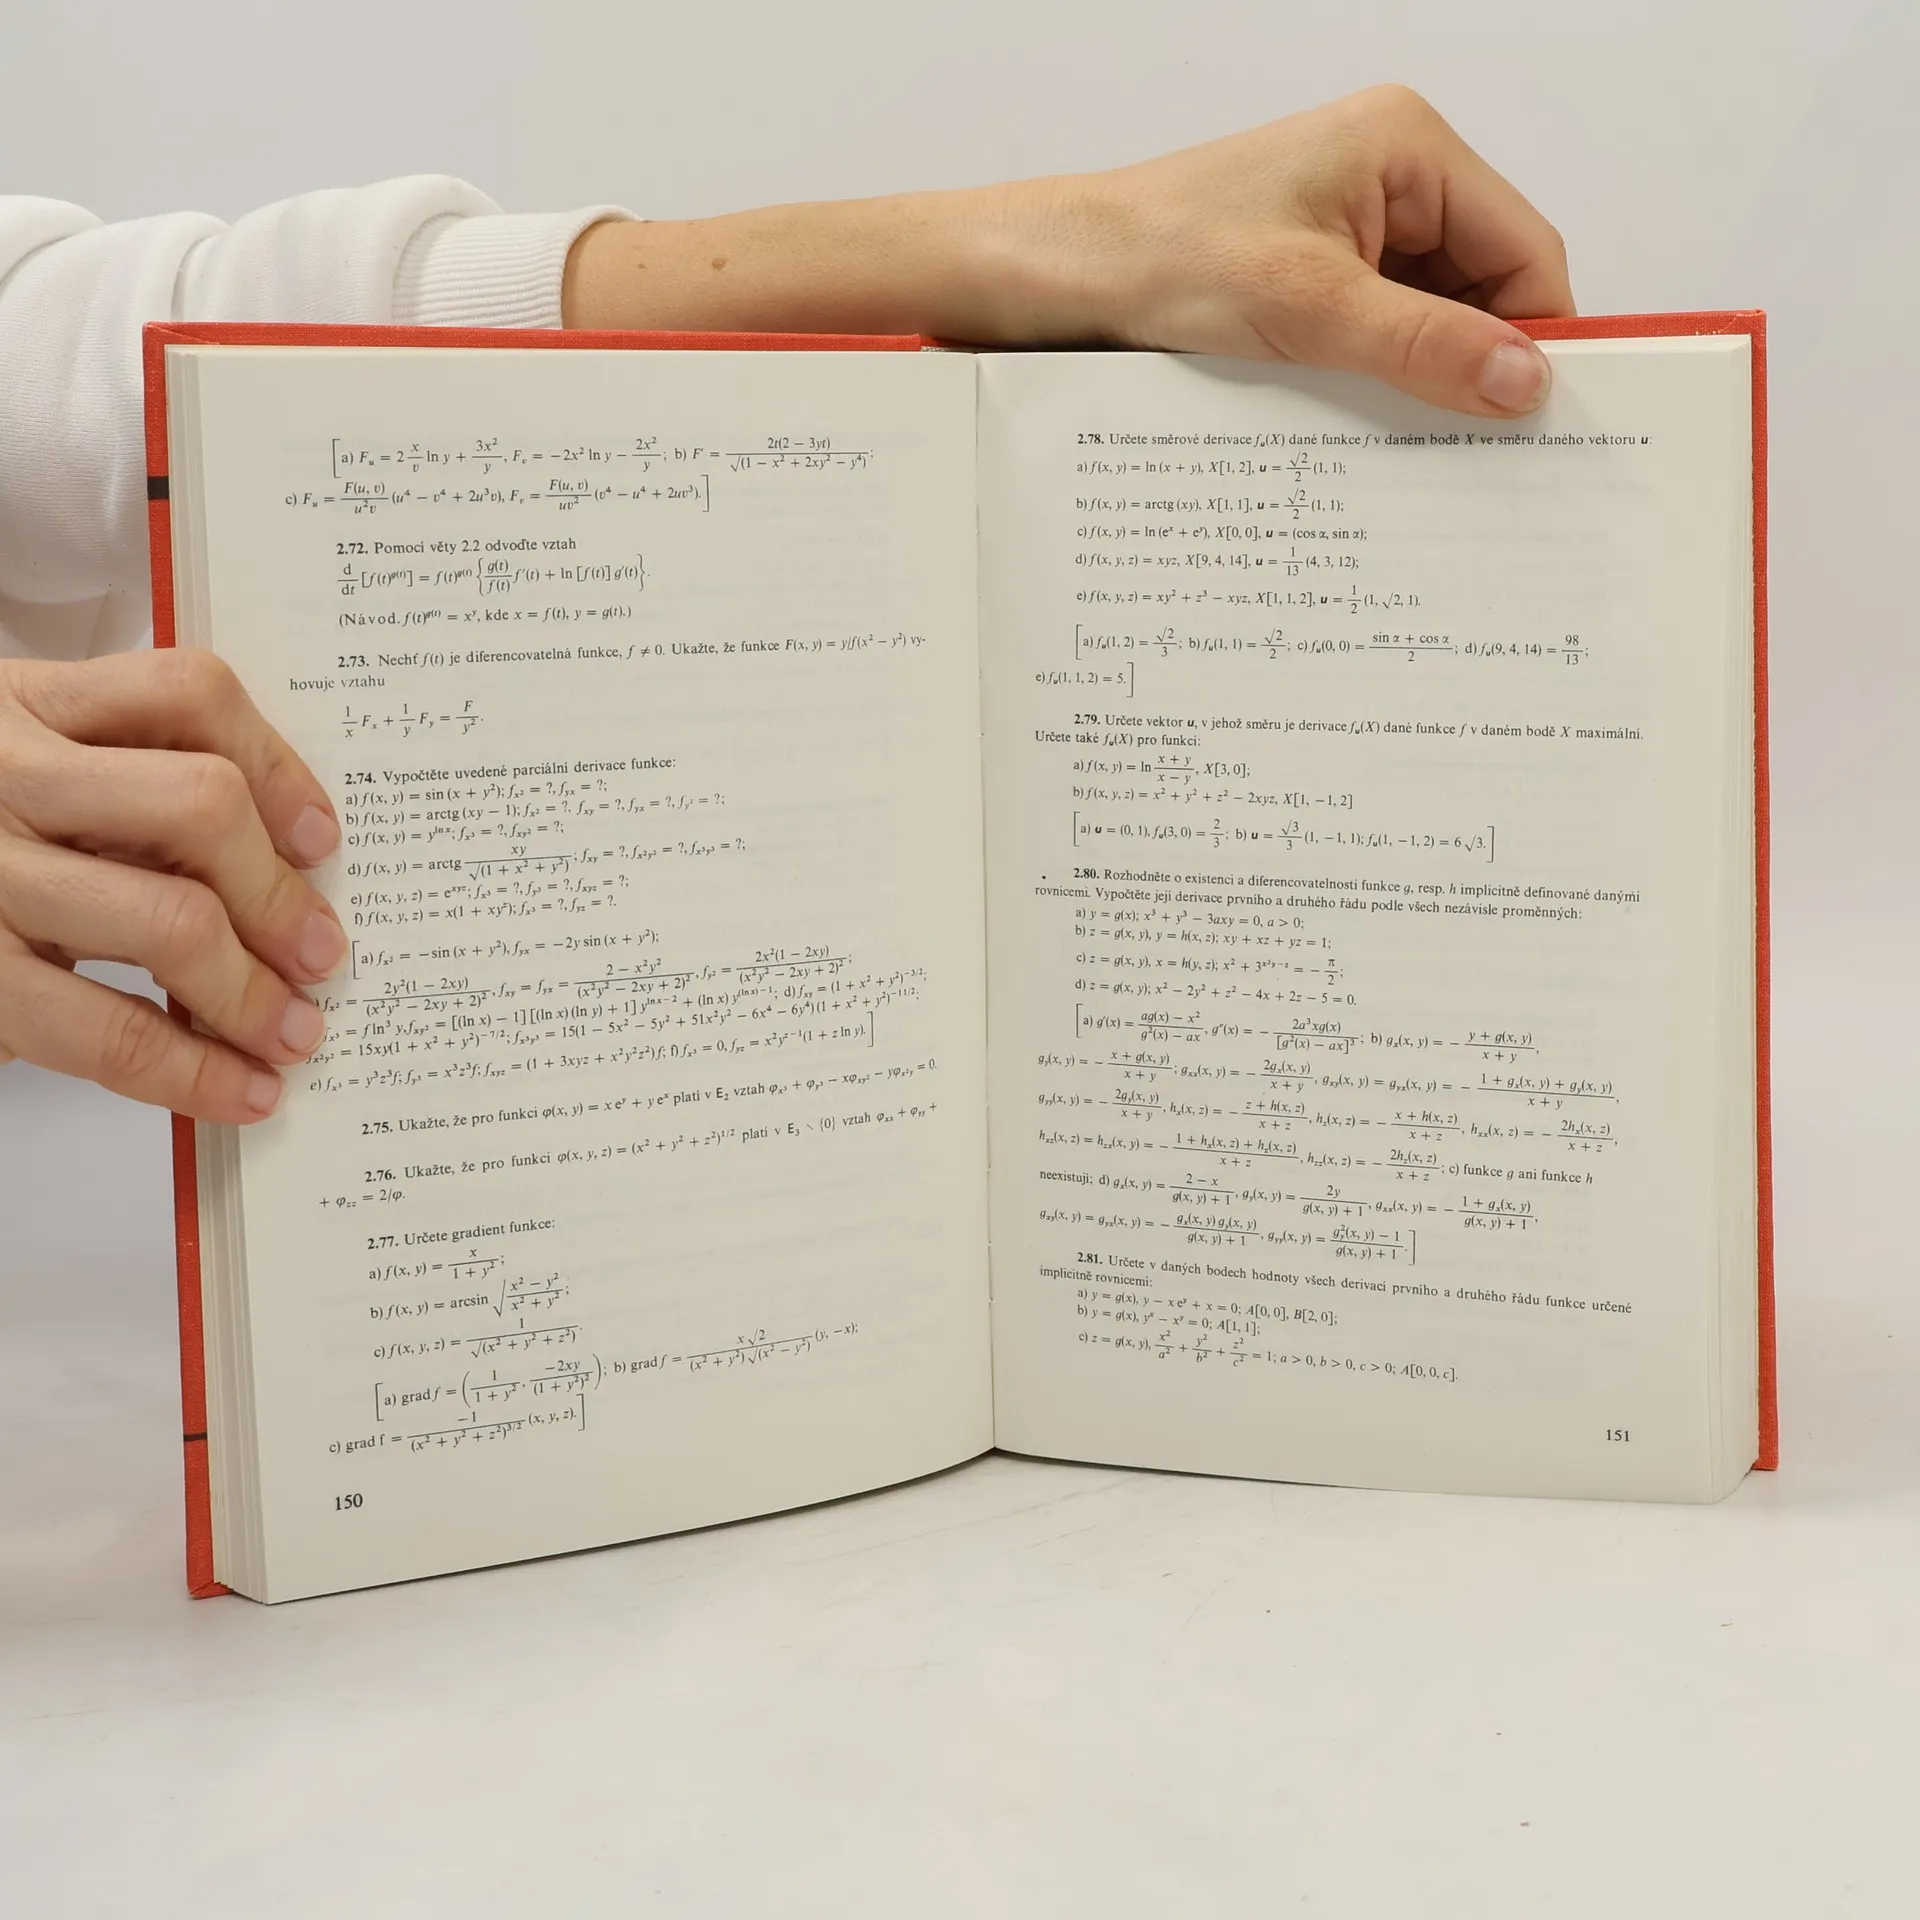 [a) F_u = 2 x/v ln y + 3x²/y, F_v = −2x² ln y − 2x²/y; b) F′ = 2t(2 − 3yt)/√(1 − x² + 2xy² − y⁴);
c) F_u = F(u, v)/u²v (u⁴ − v⁴ + 2u³v), F_v = F(u, v)/uv² (v⁴ − u⁴ + 2uv³).]
2.72. Pomocí věty 2.2 odvoďte vztah
d/dt [f(t)^g(t)] = f(t)^g(t) {g(t)/f(t) f′(t) + ln [f(t)] g′(t)}.
(Návod. f(t)^g(t) = x^y, kde x = f(t), y = g(t).)
2.73. Nechť f(t) je diferencovatelná funkce, f ≠ 0. Ukažte, že funkce F(x, y) = y/f(x² − y²) vy-
hovuje vztahu
1/x F_x + 1/y F_y = F/y².
2.74. Vypočtěte uvedené parciální derivace funkce:
a) f(x, y) = sin (x + y²); f_x² = ?, f_yx = ?;
b) f(x, y) = arctg (xy − 1); f_x² = ?, f_xy = ?, f_yx = ?, f_y² = ?;
c) f(x, y) = y^ln x; f_x³ = ?, f_xy² = ?;
d) f(x, y) = arctg xy/√(1 + x² + y²); f_xy = ?, f_x²y² = ?, f_x³y³ = ?;
e) f(x, y, z) = e^xyz; f_x³ = ?, f_y³ = ?, f_xyz = ?;
f) f(x, y, z) = x(1 + xy^z); f_x³ = ?, f_yz = ?.
[a) f_x² = −sin (x + y²), f_yx = −2y sin (x + y²);
) f_x² = 2y²(1 − 2xy)/(x²y² − 2xy + 2)², f_xy = f_yx = 2 − x²y²/(x²y² − 2xy + 2)², f_y² = 2x²(1 − 2xy)/(x²y² − 2xy + 2)²;
f_x³ = f ln³ y, f_xy² = [(ln x) − 1] [(ln x) (ln y) + 1] y^ln x − 2 + (ln x) y^(ln x) − 1; d) f_xy = (1 + x² + y²)^−3/2;
f_x²y² = 15xy(1 + x² + y²)^−7/2; f_x³y³ = 15(1 − 5x² − 5y² + 51x²y² − 6x⁴ − 6y⁴) (1 + x² + y²)^−11/2;
e) f_x³ = y³z³f; f_y³ = x³z³f; f_xyz = (1 + 3xyz + x²y²z²) f; f) f_x³ = 0, f_yz = x²y^z−1(1 + z ln y).]
2.75. Ukažte, že pro funkci φ(x, y) = x e^y + y e^x platí v E₂ vztah φ_x³ + φ_y³ − xφ_xy² − yφ_x²y = 0.
2.76. Ukažte, že pro funkci φ(x, y, z) = (x² + y² + z²)^1/2 platí v E₃ ∖ {0} vztah φ_xx + φ_yy +
+ φ_zz = 2/φ.
2.77. Určete gradient funkce:
a) f(x, y) = x/1 + y²;
b) f(x, y) = arcsin √x² − y²/x² + y²;
c) f(x, y, z) = 1/√(x² + y² + z²).
[a) grad f = (1/1 + y², −2xy/(1 + y²)²); b) grad f = x √2/(x² + y²) √(x² − y²) (y, −x);
c) grad f = −1/(x² + y² + z²)^3/2 (x, y, z).]
150
2.78. Určete směrové derivace f_u(X) dané funkce f v daném bodě X ve směru daného vektoru u:
a) f(x, y) = ln (x + y), X[1, 2], u = √2/2 (1, 1);
b) f(x, y) = arctg (xy), X[1, 1], u = √2/2 (1, 1);
c) f(x, y) = ln (e^x + e^y), X[0, 0], u = (cos α, sin α);
d) f(x, y, z) = xyz, X[9, 4, 14], u = 1/13 (4, 3, 12);
e) f(x, y, z) = xy² + z³ − xyz, X[1, 1, 2], u = 1/2 (1, √2, 1).
[a) f_u(1, 2) = √2/3; b) f_u(1, 1) = √2/2; c) f_u(0, 0) = sin α + cos α/2; d) f_u(9, 4, 14) = 98/13;
e) f_u(1, 1, 2) = 5.]
2.79. Určete vektor u, v jehož směru je derivace f_u(X) dané funkce f v daném bodě X maximální.
Určete také f_u(X) pro funkci:
a) f(x, y) = ln x + y/x − y, X[3, 0];
b) f(x, y, z) = x² + y² + z² − 2xyz, X[1, −1, 2]
[a) u = (0, 1), f_u(3, 0) = 2/3; b) u = √3/3 (1, −1, 1); f_u(1, −1, 2) = 6 √3.]
2.80. Rozhodněte o existenci a diferencovatelnosti funkce g, resp. h implicitně definované danými
rovnicemi. Vypočtěte její derivace prvního a druhého řádu podle všech nezávisle proměnných:
a) y = g(x); x³ + y³ − 3axy = 0, a > 0;
b) z = g(x, y), y = h(x, z); xy + xz + yz = 1;
c) z = g(x, y), x = h(y, z); x² + 3^x²y−z = − π/2;
d) z = g(x, y); x² − 2y² + z² − 4x + 2z − 5 = 0.
[a) g′(x) = ag(x) − x²/g²(x) − ax, g″(x) = − 2a³xg(x)/[g²(x) − ax]³; b) g_x(x, y) = − y + g(x, y)/x + y,
g_y(x, y) = − x + g(x, y)/x + y; g_xx(x, y) = − 2g_x(x, y)/x + y, g_xy(x, y) = g_yx(x, y) = − 1 + g_x(x, y) + g_y(x, y)/x + y,
g_yy(x, y) = − 2g_y(x, y)/x + y, h_x(x, z) = − z + h(x, z)/x + z, h_z(x, z) = − x + h(x, z)/x + z, h_xx(x, z) = − 2h_x(x, z)/x + z,
h_xz(x, z) = h_zx(x, y) = − 1 + h_x(x, z) + h_z(x, z)/x + z, h_zz(x, z) = − 2h_z(x, z)/x + z; c) funkce g ani funkce h
neexistují; d) g_x(x, y) = 2 − x/g(x, y) + 1, g_y(x, y) = 2y/g(x, y) + 1, g_xx(x, y) = − 1 + g_x(x, y)/g(x, y) + 1,
g_xy(x, y) = g_yx(x, y) = − g_x(x, y) g_y(x, y)/g(x, y) + 1, g_yy(x, y) = g_y²(x, y) − 1/g(x, y) + 1.]
2.81. Určete v daných bodech hodnoty všech derivací prvního a druhého řádu funkce určené
implicitně rovnicemi:
a) y = g(x), y − x e^y + x = 0; A[0, 0], B[2, 0];
b) y = g(x), y^x − x^y = 0; A[1, 1];
c) z = g(x, y), x²/a² + y²/b² + z²/c² = 1; a > 0, b > 0, c > 0; A[0, 0, c].
151